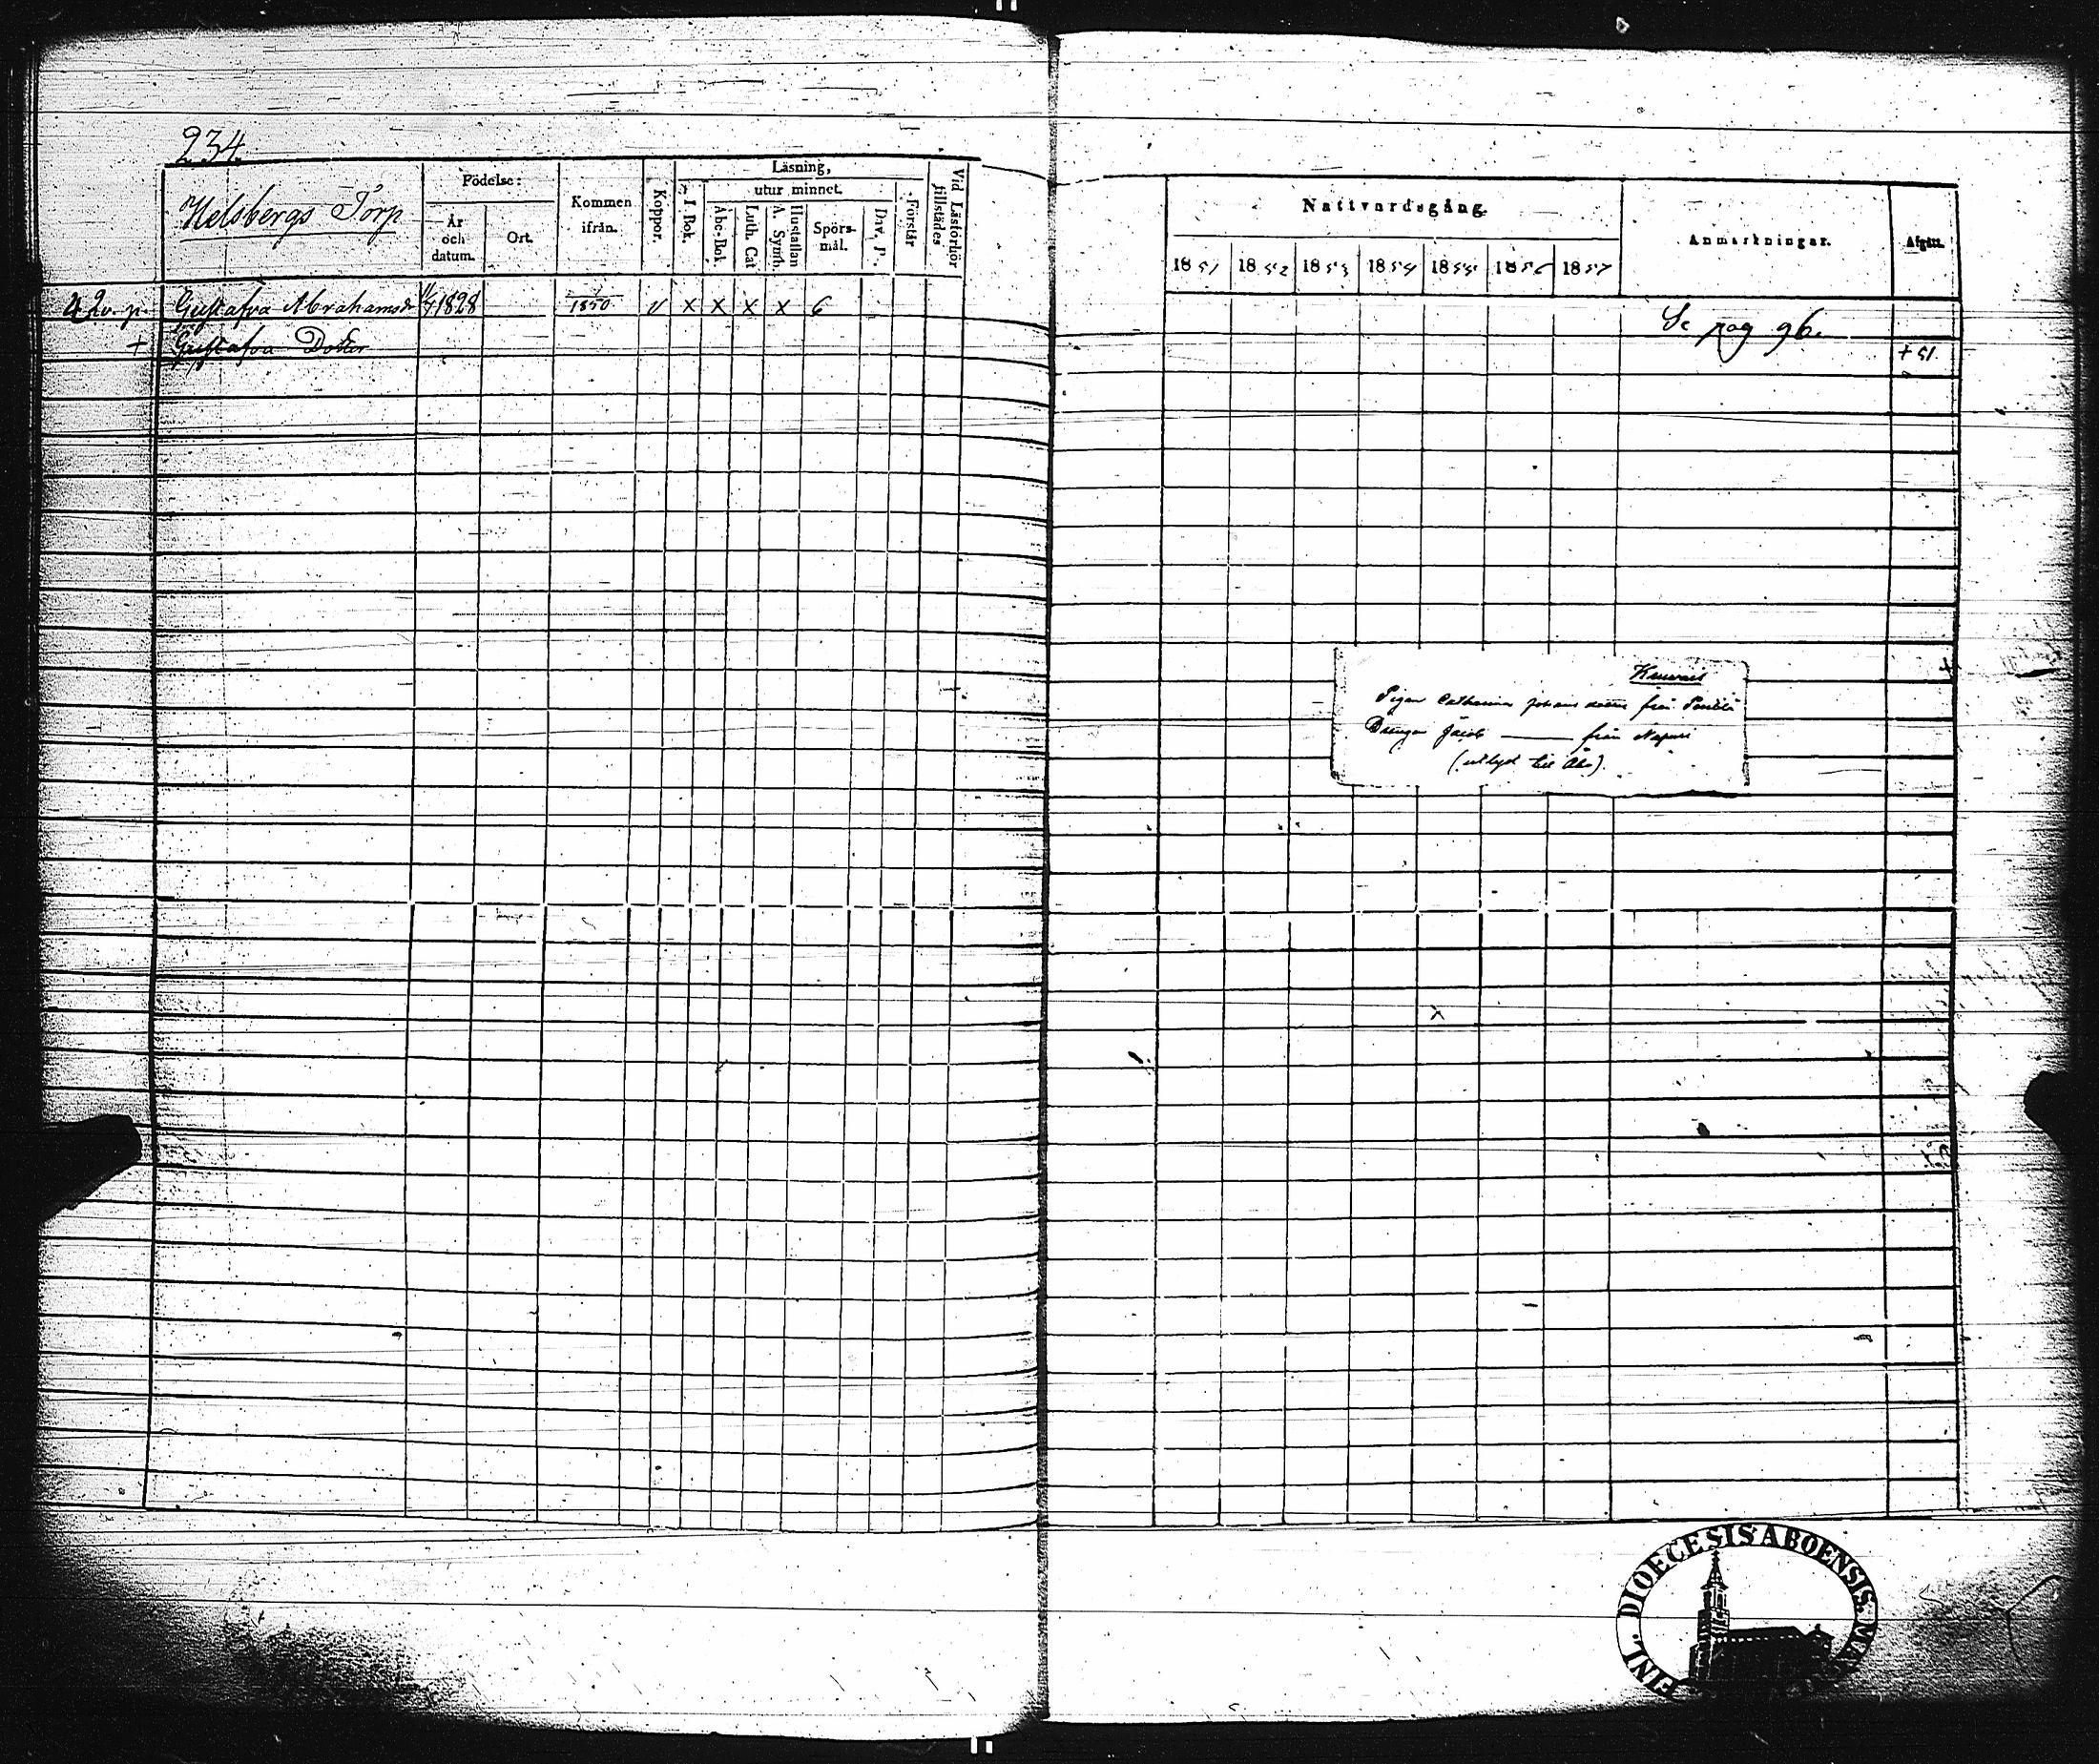 234.
Helsbergs Torp
Födelse:
År och datum.
Ort.
Kommen ifrån.
Koppor.
Läsning,
I. Bok.
utur minnet.
Abc-Bok.
Luth. Cat
Hustaflan A. Symb.
Spörs-mål.
Dav. P.
Förstår
Vid Läsförhör tillstädes
Gustafva Abrahamsdr 1828 1850 v x x x x 6
+ Gustafva Dotter
Nattvardsgång.
1851 1852 1853 1854 1855 1856 1857
Anmärkningar.
Afgått.
Se pag 96.
+ 51
Pigan Catharina Johansdotter från
Drängen Jacob ——— från Napari
(utlyst till Åbo).
x
FINL. DIOECESIS ABOENSIS.